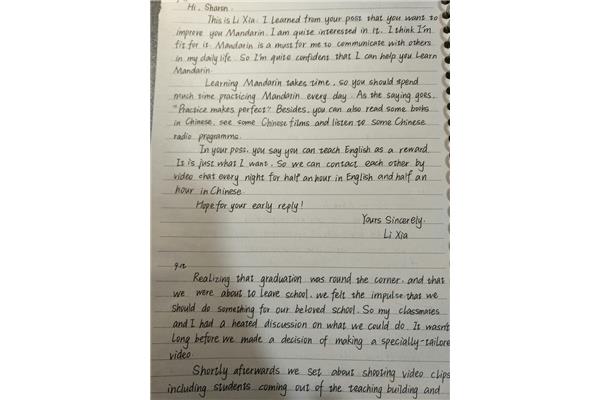 Hi, Sharon.
This is Li Xia. I learned from your post that you want to
improve you Mandarin. I am quite interested in it. I think I'm
fit for it. Mandarin is a must for me to communicate with others
in my daily life. So I'm quite confident that I can help you learn
Mandarin.
Learning Mandarin takes time, so you should spend
much time practicing Mandarin every day. As the saying goes,
"Practice makes perfect". Besides, you can also read some books
in Chinese, see some Chinese films and listen to some Chinese
radio programms.
In your post, you say you can teach English as a reward.
It is just what I want. So we can contact each other by
video chat every night for half an hour in English and half an
hour in Chinese.
Hope for your early reply!
Yours Sincerely.
Li Xia
Realizing that graduation was round the corner, and that
we were about to leave school, we felt the impulse that we
should do something for our beloved school. So my classmates
and I had a heated discussion on what we could do. It wasn't
long before we made a decision of making a specially-tailore
video.
Shortly afterwards we set about shooting video clips
including students coming out of the teaching building and